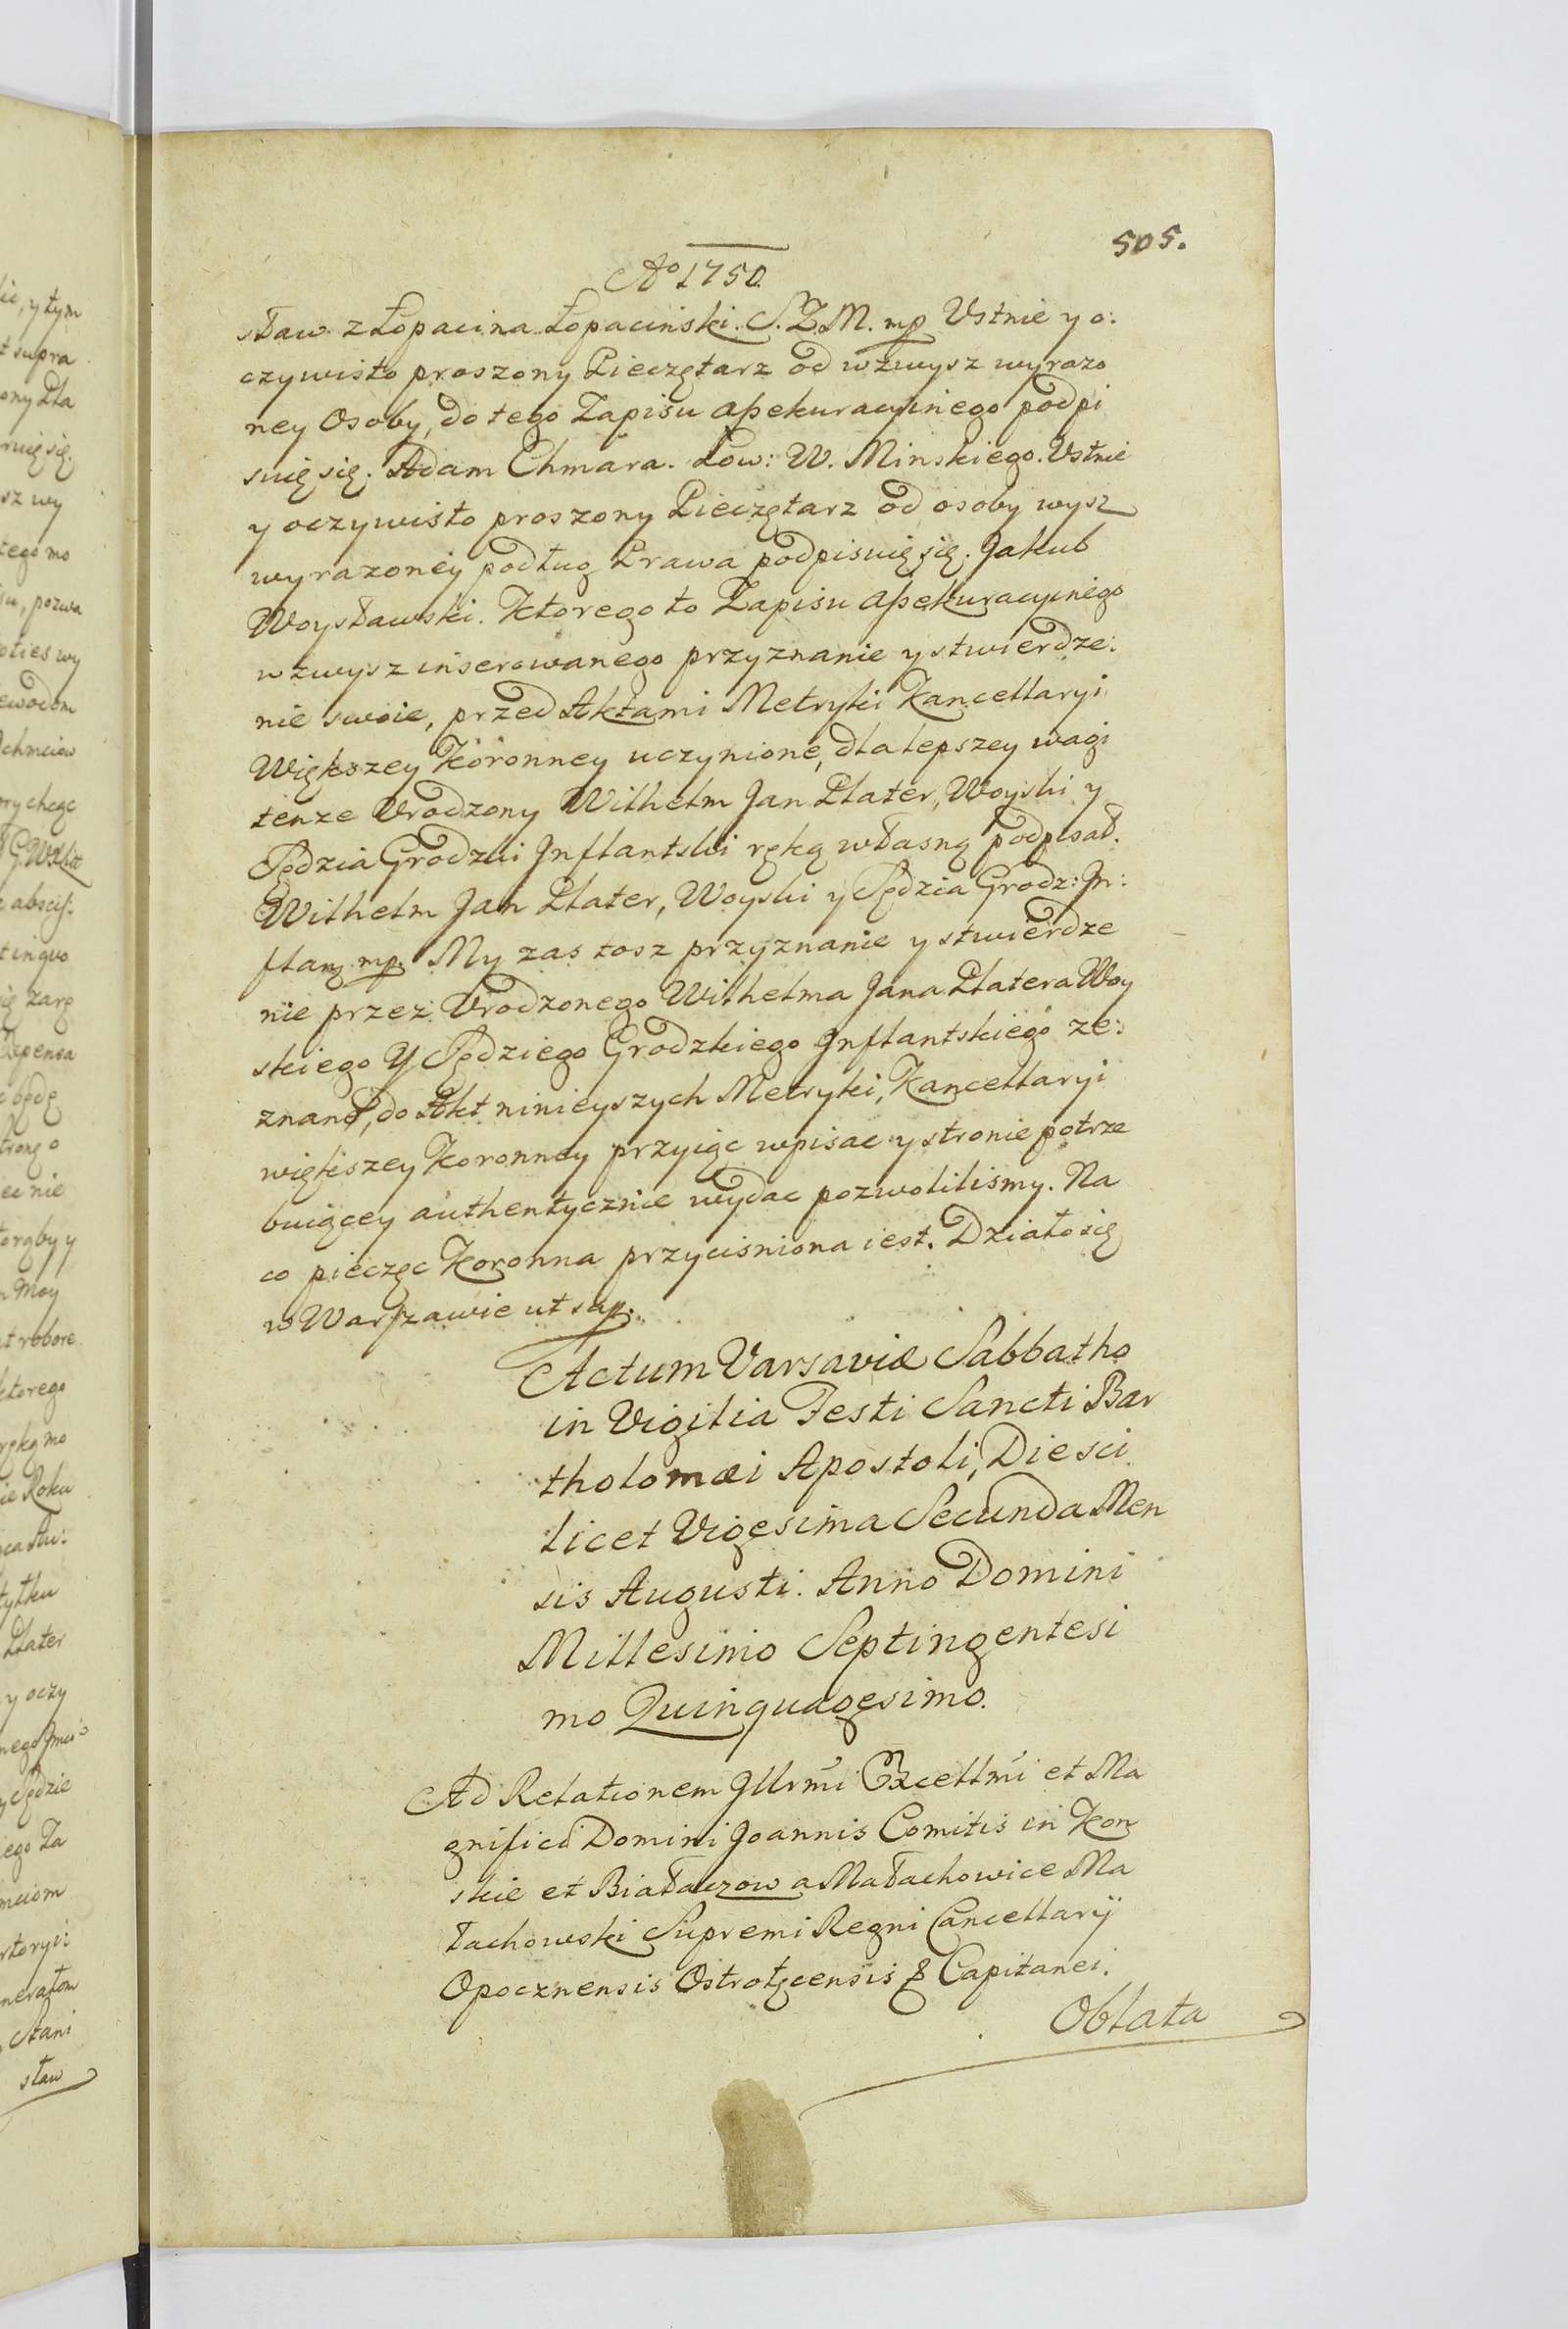 505.
Aº 1750
sław z Łopacina Łopacinski. S. Z. M. mp Vstnie y o:
czywisto proszony Pieczętarz od wzwysz wyrazo
ney Osoby, do tego Zapisu assekuracyinego podpi
suię się. Adam Chmara. Łow: W. Minskiego. Vstnie
y oczywisto proszony Pieczętarz od osoby wysz
wyrazoney podług Prawa podpisuię się. Jakub
Woysławski. Ktorego to Zapisu assekuracyinego
wzwysz inserowanego przyznanie y stwierdze:
nie swoie, przed Aktami Metryki Kancellaryi
Większey Koronney uczynione, dla lepszey wagi
tenze Vrodzony Wilhelm Jan Plater, Woyski y
Sędzia Grodzki Jnflantski ręką własną podpisał.
Wilhelm Jan Plater, Woyski y Sędzia Grodz: Jn:
flan mp. My zas tosz przyznanie y stwierdze
nie przez Vrodzonego Wilhelma Jana Platera Woy
skiego Y Sędziego Grodzkiego Jnflantskiego ze:
znane, do Akt ninieyszych Metryki, Kancellaryi
większey Koronney przyiąc wpisac y stronie potrze
buiącey authentycznie wydac pozwolilismy. Na
co pieczęc Koronna przycisniona iest. Działo się
w Warszawie ut sup.
Actum Varsaviæ Sabbatho
in Vigilia Festi Sancti Bar
tholomæi Apostoli, Die sci
licet Vigesima Secunda Men
sis Augusti. Anno Domini
Millesimo Septingentesi
mo Quinquagesimo.
Ad Relationem Jllrmi Excellmi et Ma
gnifici Domini Joannis Comitis in Kon
skie et Białaczow a Małachowice Ma
łachowski Supremi Regni Cancellarij
Opocznensis Ostrołęcensis & Capitanei.
Oblata